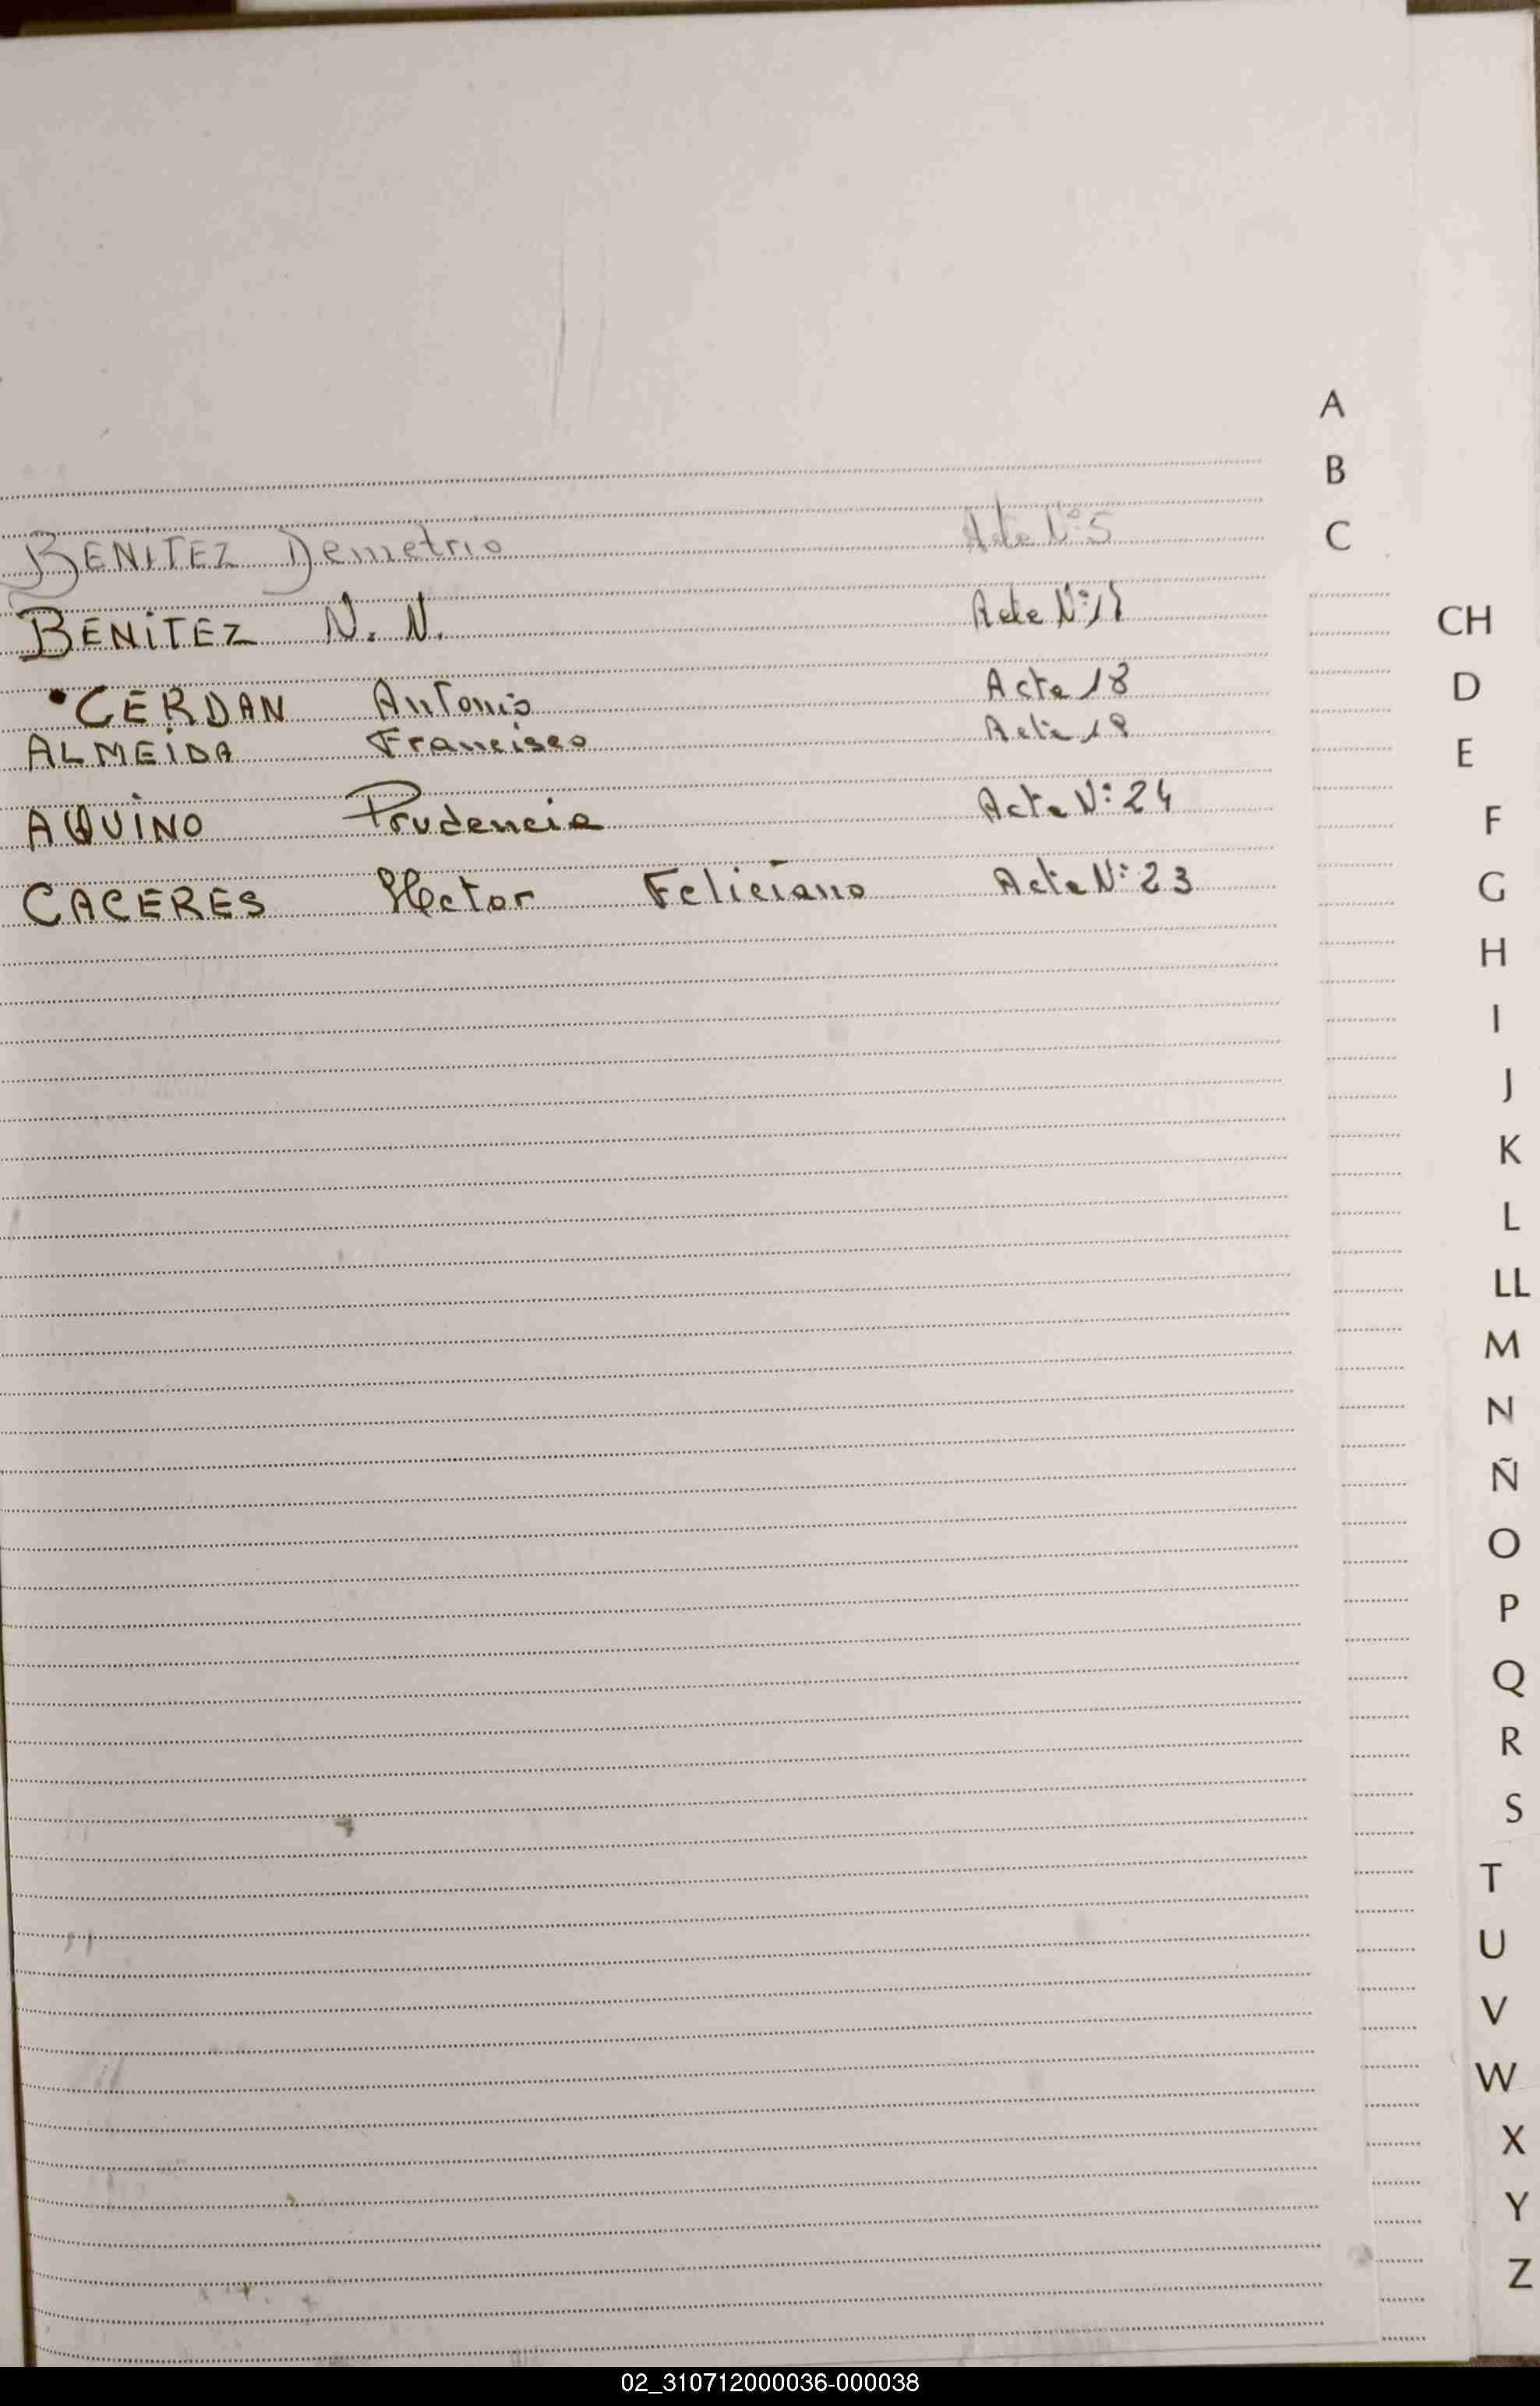 A
B
C
BENITEZ Demetrio Acta Nº 5
BENITEZ N. N. Acta Nº
CH
D
CERDAN Antonio Acta 18
ALMEIDA Francisco Acta
E
AQUINO Prudencia Acta Nº: 24
F
CACERES Hector Feliciano Acta Nº: 23
G
H
I
J
K
L
LL
M
N
Ñ
O
P
Q
R
S
T
U
V
W
X
Y
Z
02_310712000036-000038